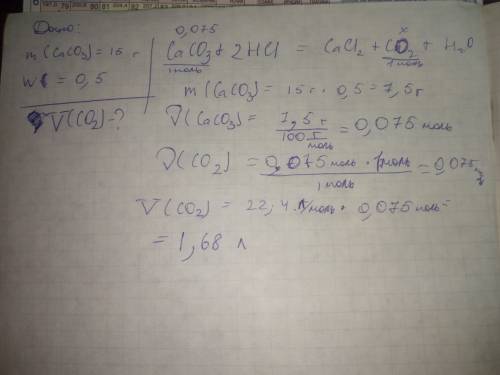 Дано:
m(CaCO3) = 15 г
W = 0,5
V(CO2) = ?
0,075 x
CaCO3 + 2HCl = CaCl2 + CO2 + H2O
1 моль 1 моль
m(CaCO3) = 15 г · 0,5 = 7,5 г
ν(CaCO3) = 7,5 г / 100 г/моль = 0,075 моль
ν(CO2) = 0,075 моль · 1 моль / 1 моль = 0,075
V(CO2) = 22,4 л/моль · 0,075 моль =
= 1,68 л